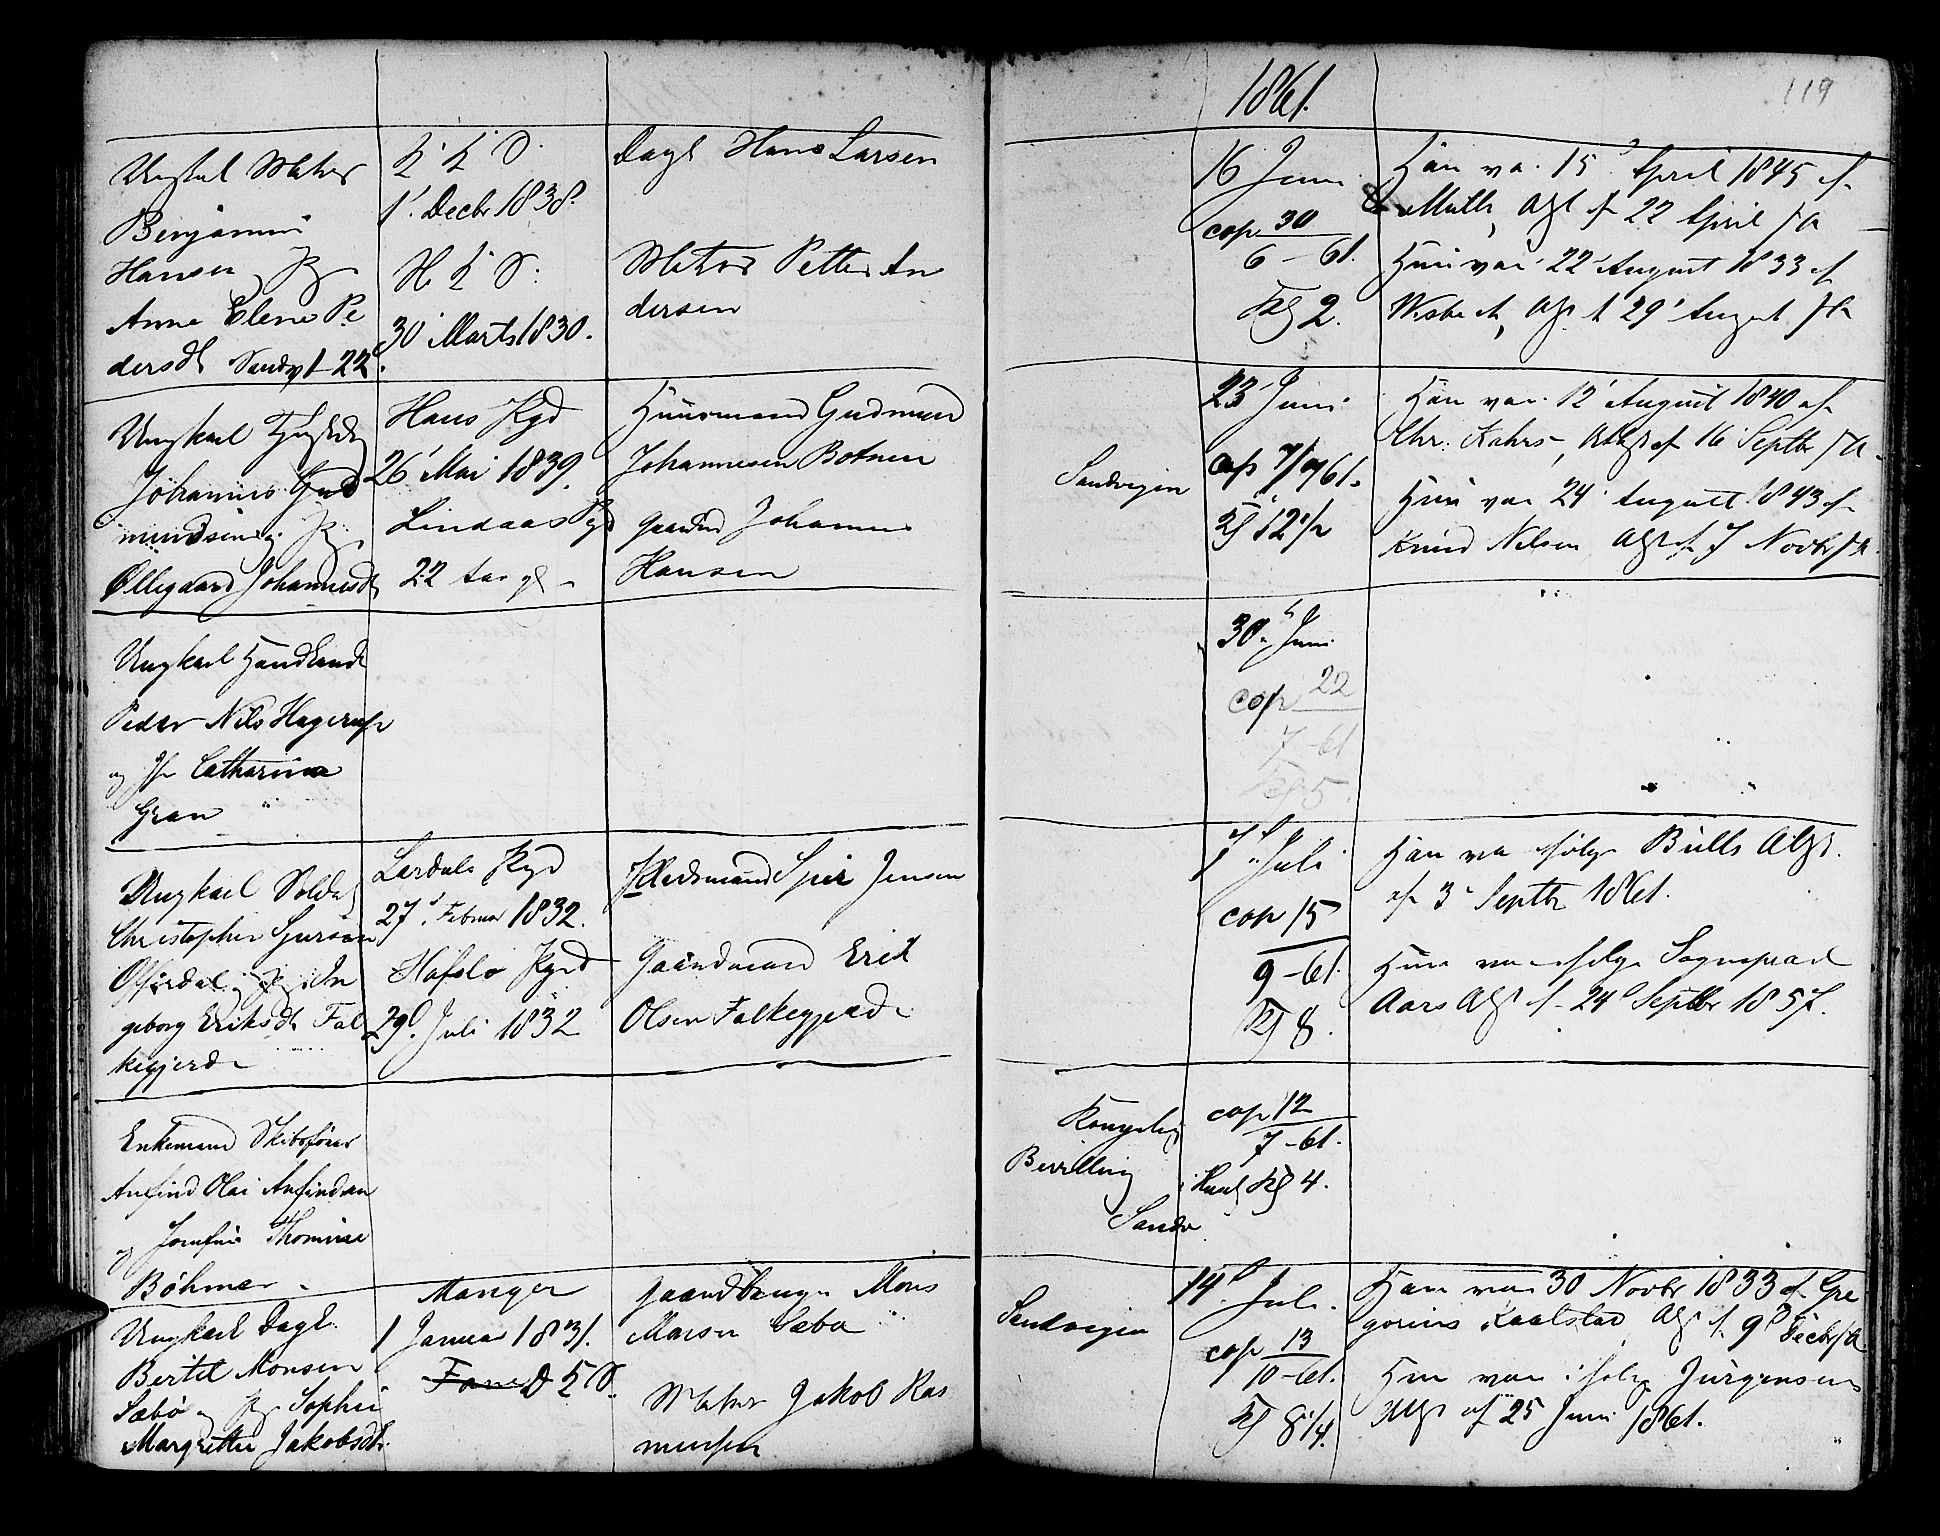 1861.
119
Benjamin
Hansen
Anne Elene Pe
dersdt Sandv 1-22
K K S.
1' Decbr 1838.
H K S.
30' Marts 1830.
Dagl Hans Larsen
Petter An
dersen
16 Juni
cop 30
6 - 61.
Kl 2.
Han var 15 April 1845 af
22 April
Hun var 22 August 1833 af
Wisbech, 29' August
Ungkarl
Johannes Gud
mundsen og
Øllegaard Johannesdt
Hans Kgd
26' Mai 1839.
Lindaas Pgd
22 Aar gl
Huusmand Gudmun
Johannesen Botnen
Gaardmd Johannes
Hansen
Sandvigen
23 Juni
cop 7/7 61.
Kl 12 1/2
Han var 12' August 1840 af
Chr. Kahrs, Attest af 16 Septbr
Hun var 24 August 1843 af
Knud Nilsen Atst af 7 Novbr
Ungkarl Handlende
Peder Nils Hagerup
og Catharina
Gran
30 Juni
cop 22
7-61
Kl 5
Ungkarl Soldat
Christopher
Ofverdal og In
geborg Eriksdt Fal
kegjerde
Lerdals Pgd
27 Februar 1832.
Hafslo Pgd
29 Juli 1832
Huusmand Jensen
Gaardmand Erik
Olsen Falkegjerde
7 Juli
cop 15
9-61.
Kl 8.
Han var ifølge Bulls Atst.
af 3 Septbr 1861.
Hun var ifølge Sogneprest
Aars Atst af 24 Septbr 1857.
Enkemand Skibsfører
Anfind Olai Anfindsen
og Thomine
Bøhmer
Kongelig
Bevilling
Sandv
cop 12
7-61.
Kl 4.
Ungkarl Dagl.
Bertel Monsen
Sæbø og Sophie
Margrethe Jakobsdt.
Manger
1 Januar 1831.
Fane D K S.
Gaardbruger Mons
Monsen Sæbø
Jakob Ras
mussen
Sandvigen
14 Juli
cop 13
10-61.
Kl 8 1/4.
Han var 30 Novbr 1833 af Gre
gorius Kaalstad Atst af 9 Decbr
Hun var ifølge Jürgensens
Atst af 25 Juni 1861.